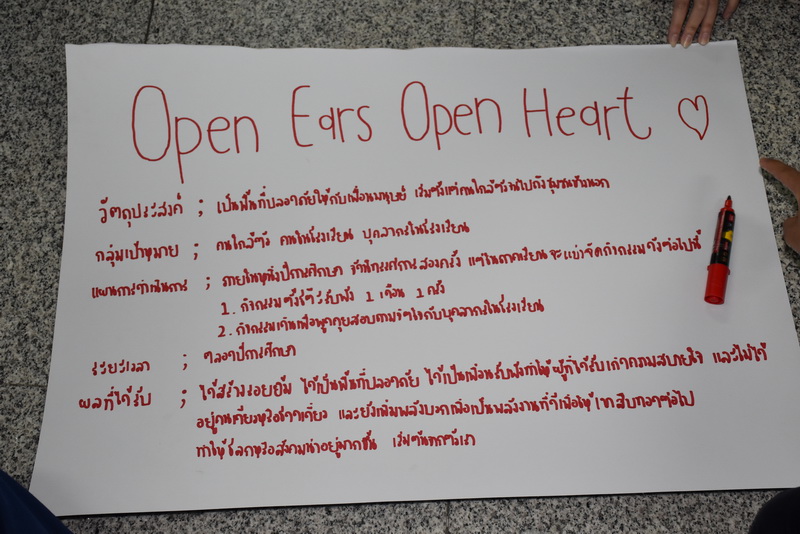 Open Ears Open Heart
วัตถุประสงค์ ; เป็นพื้นที่ปลอดภัยให้กับเพื่อนมนุษย์ เริ่มตั้งแต่คนใกล้ตัวจนไปถึงชุมชนข้างนอก
กลุ่มเป้าหมาย ; คนใกล้ตัว คนในโรงเรียน บุคลากรในโรงเรียน
แผนการดำเนินการ ; ภายในหนึ่งปีการศึกษา สองครั้ง แต่ในภาคเรียนจะแบ่งจัดกิจกรรมดังต่อไปนี้
1. กิจกรรมตั้งโต๊ะรับฟัง 1 เดือน 1 ครั้ง
2. กิจกรรมเดินเพื่อพูดคุยสอบถามจิตใจกับบุคลากรในโรงเรียน
ระยะเวลา ; ตลอดปีการศึกษา
ผลที่ได้รับ ; ได้สร้างรอยยิ้ม ได้เป็นพื้นที่ปลอดภัย ได้เป็นเพื่อนรับฟังทำให้ผู้ที่ได้รับเกิดความสบายใจ และไม่ได้
อยู่คนเดียวหรือโดดเดี่ยว และยังเพิ่มพลังบวกเพื่อเป็นพลังงานที่ดีเพื่อให้เขาสืบทอดต่อไป
ทำให้โลกหรือสังคมน่าอยู่มากขึ้น เริ่มต้นจากตัวเรา